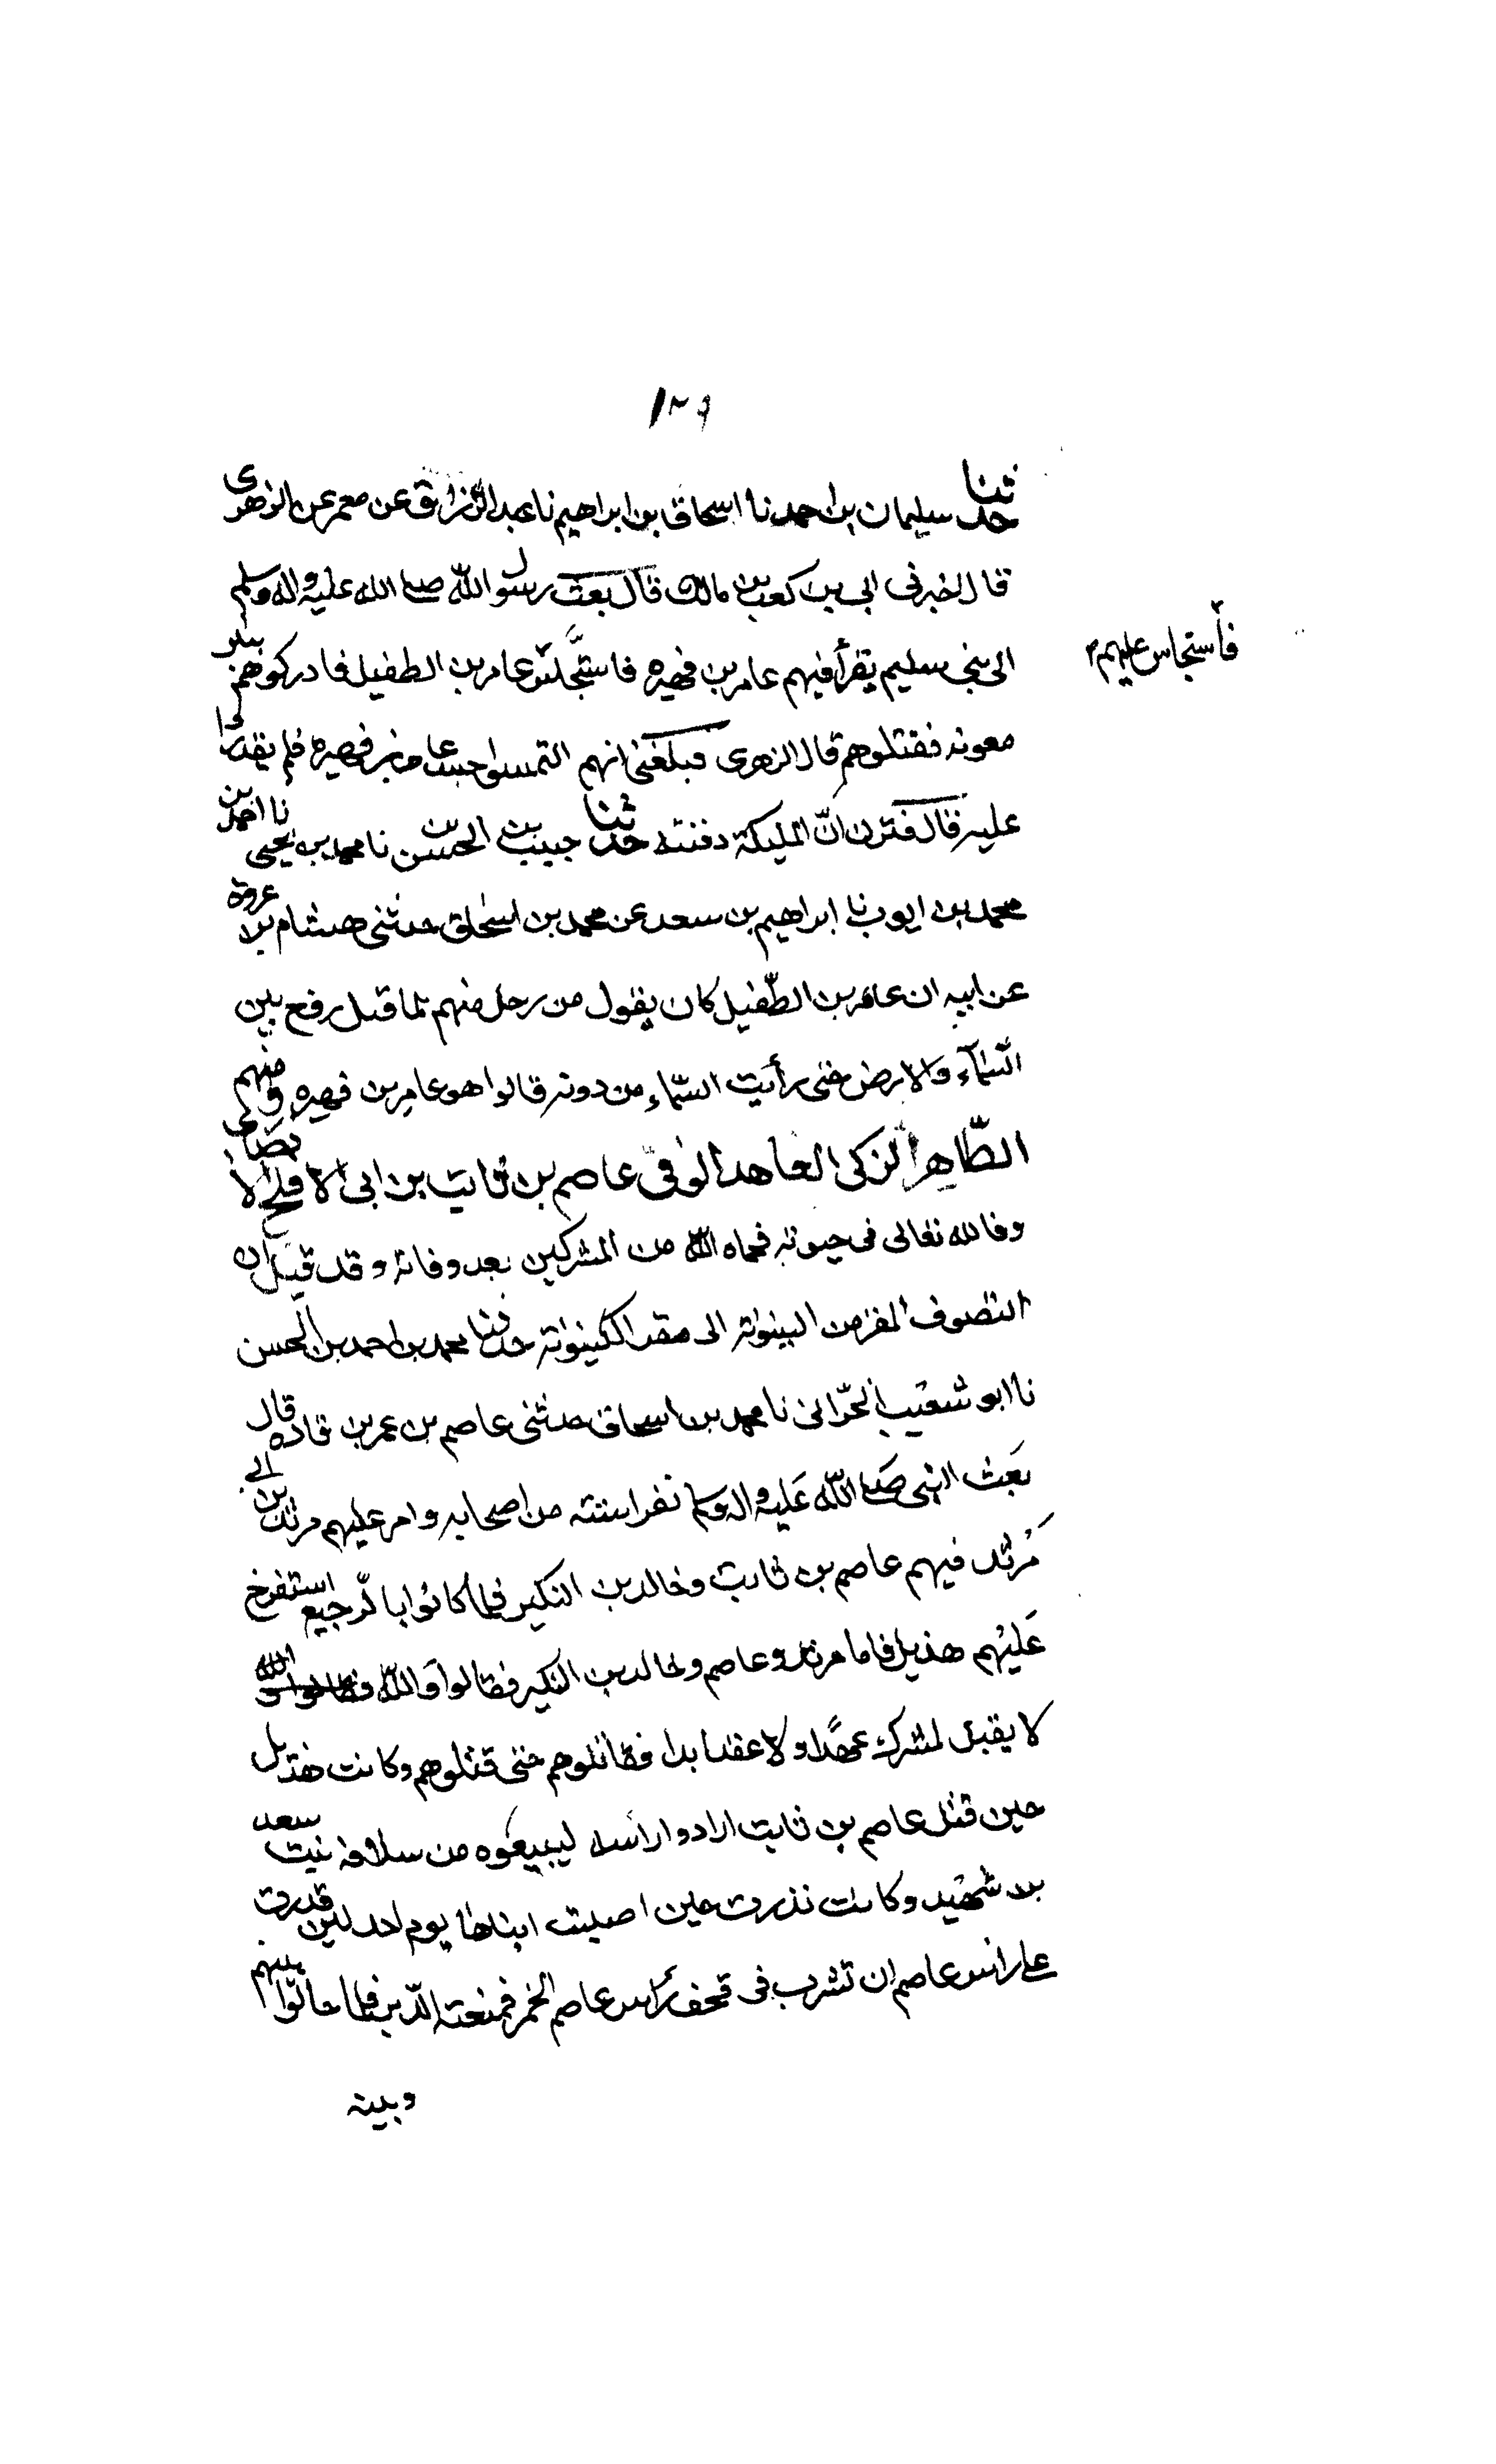 ١٢٩
حدثنا سليمان بن احمد نا اسحاق بن ابراهيم نا عبد الرزاق عن معمر عن الزهرى
قال اخبرنى ابى بن كعب بن مالك قال بعث رسول الله صلے الله عليه واله وسلم
الى بنى سليم يقرأ فيهم عامر بن فهيره عامر بن الطفيل فادركوهم ببئر
فاستجاس عليهم
معونه فقتلوهم قال الزهرى فبلغنى انهم التمسوا جسد عامر بن فهيره فلم يقدروا
عليه قال فترن انّ المليكة دفنته حدثنا حبيب بن الحسن نا محمد بن يحيى نا احمد بن
محمد بن ايوب نا ابراهيم بن سعد عن محمد بن اسحاق حدثنى هشام بن عروة
عن ابيه ان عامر بن الطّفيل كان يقول من رجل منهم لما قتل رفع بين
السّمآء والارض حتى رأيت السّماء من دونه قالوا هو عامر بن فهيره ومنهم
الطّاهر الزكى العاهد الوفى عاصم بن ثابت بن ابى الاقلح الانصاري
وفا لله تعالى فى حيوته فحماه الله من المشركين بعد وفاته وقد قيل ان
التصوف المفر من البينونة الى مقر الكينونة حدثنا محمد بن احمد بن الحسن
نا ابو شعيب الحرّانى نا محمد بن اسحاق حدثنى عاصم بن عمر بن قتاده قال
بعث النبى صلے الله عليه واله وسلم نفرا ستته من اصحابه وامر عليهم مرثد بن ابي
مرثد فيهم عاصم بن ثابت وخالد بن البكير فلما كانوا بالرّجيع استفرخ
عليهم هذيل فاما مرثد وعاصم وخالد بن البكير فقالوا والله فقالوا والله
لا يقبل لمشرك عهدًا ولا عقدا ابدا فقاتلوهم حتى قتلوهم وكانت هذيل
حين قتل عاصم بن ثابت ارادوا راسه ليبيعوه من سلافه بنت سعد
بن شهيد وكانت نذرت حين اصيبت ابناها يوم احد لئن قدرت
على راس عاصم ان تشرب فى قحف راس عاصم الخمر فمنعته الدّبر فلما حالوا بينهم
وبينه